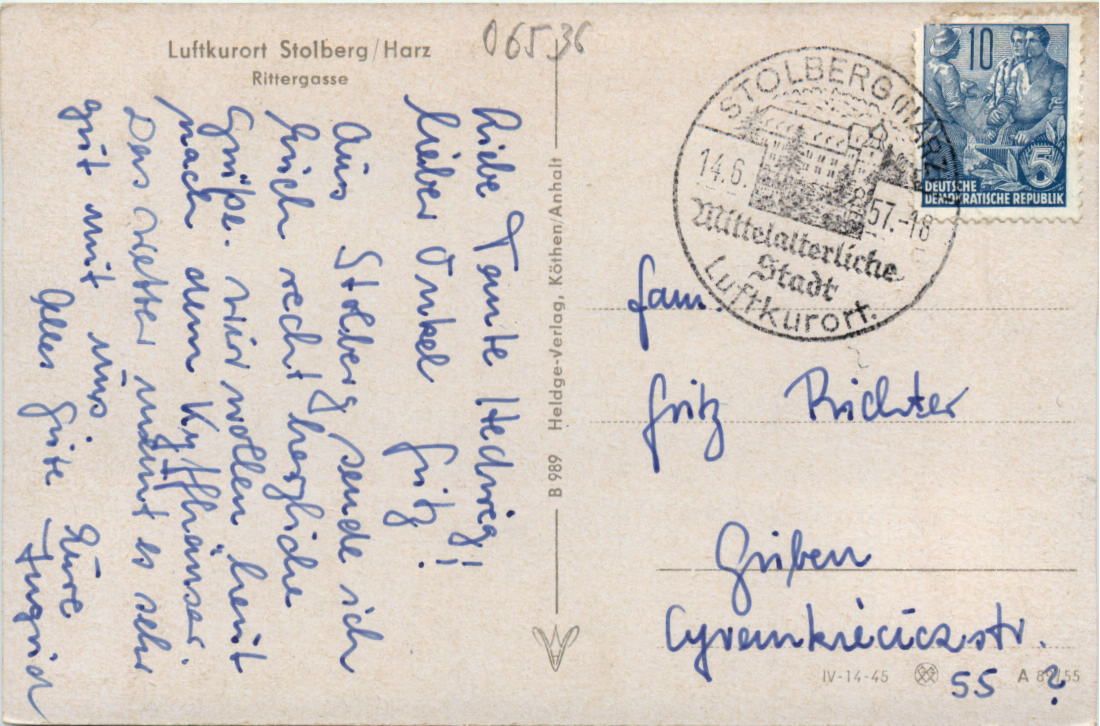 Luftkurort Stolberg/Harz
Rittergasse
06536
Liebe Tante Hedwig!
lieber Onkel Fritz!
Aus Stolberg sende ich
Euch recht herzliche
Grüße. Wir wollen heut
nach dem Kyffhäuser.
Das Wetter meint es sehr
gut mit uns.
Alles Gute Eure
Ingrid
B 989 Heldge-Verlag, Köthen/Anhalt
STOLBERG (HARZ)
14.6.57.-18
Mittelalterliche
Stadt
Luftkurort.
10
5
DEUTSCHE
DEMOKRATISCHE REPUBLIK
Fam.
Fritz Richter
Guben
55 ?
IV-14-45 A 89/55